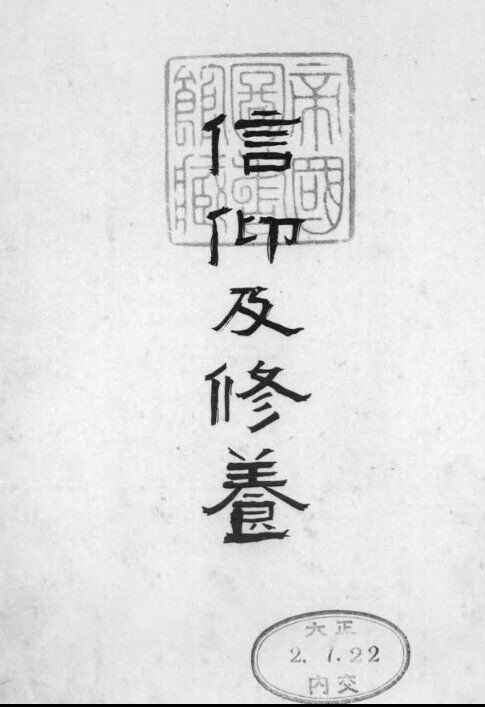 信仰及修養
帝國
圖書
館藏
大正
2. 7. 22
内交